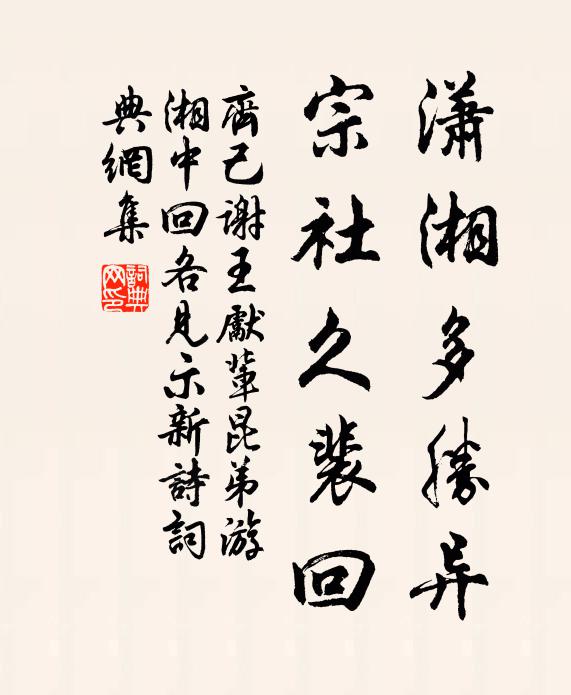 瀟湘多勝异
宗社久裴回
齊己謝王獻輩昆弟游
湘中回各見示新詩詞
典網集
詞典网印